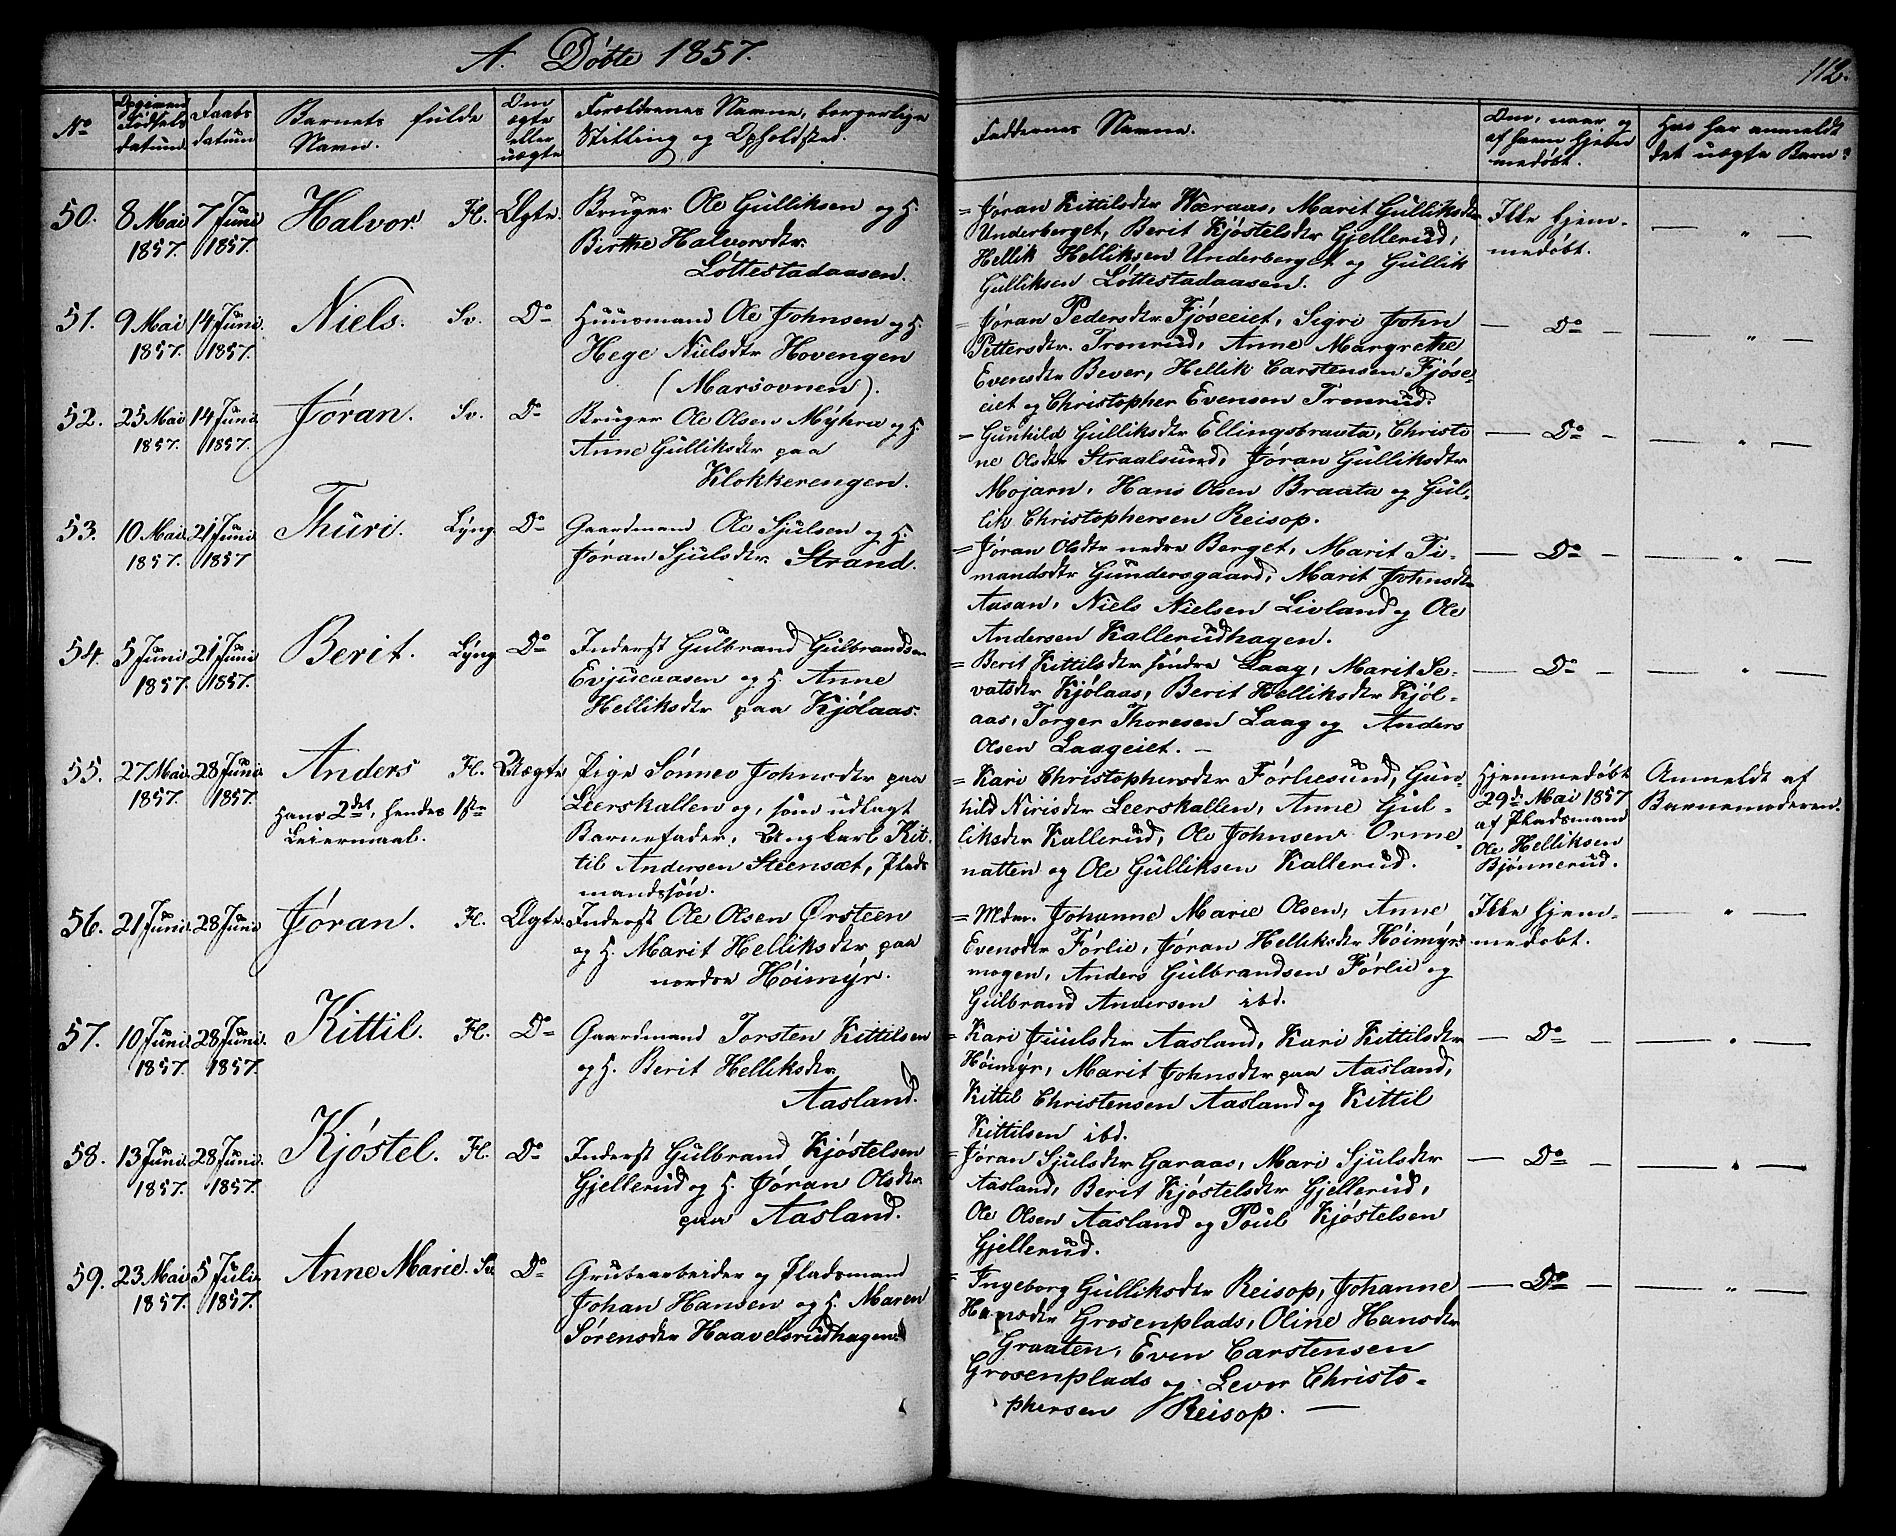 A. Døbte 1857.
112.
No
Opgiven Fødsels datum.
Daabs datum
Barnets fulde Navn.
Om ægte eller uægte
Forældrenes Navne, borgerlige Stilling og Opholdsted.
Faddernes Navne.
Om, naar og af hvem hjemmedøbt.
Hvo har anmeldt det uægte Barn?
50. 8 Mai 1857. 7 Juni 1857. Halvor. Fl. Ægte.
Bruger Ole Gulliksen og H.
Birthe Halvorsdtr.
Løttestadaasen.
= Jøran Kittilsdtr Waraas, Marit Gulliksdtr
Underberget, Berit Kjøstelsdtr Gjellerud,
Hellik Helliksen Underberget og Gullik
Gulliksen Løttestadaasen.
Ikke hjemmedøbt.
— " —
51. 9 Mai 1857. 14 Juni 1857. Niels. Sv. Do
Huusmand Ole Johnsen og H.
Hege Nielsdtr Hovengen
(Marsovnen).
= Jøran Pedersdtr Fjøseeiet, Sigri John
Pettersdtr. Trønrud, Anne Margrethe
Evensdtr Bever, Hellik Carstensen Fjøse-
eiet og Christopher Evensen Trønrud.
— Do —
— " —
52. 25 Mai 1857. 14 Juni 1857. Jøran. Sv. Do
Bruger Ole Olsen Myhre og H.
Anne Gulliksdtr paa
Klokkerengen.
= Gunhild Gulliksdtr Ellingsbraata, Christi-
ne Olsdtr Straalsund, Jøran Gulliksdtr
Mojarn, Hans Olsen Braata og Gul-
lik Christophersen Reisop.
— Do —
— " —
53. 10 Mai 1857. 21 Juni 1857 Thuri. Lyng. Do
Gaardmand Ole Sjulsen og H.
Jøran Sjulsdtr. Strand.
= Jøran Olsdtr nedre Berget, Marit Ti-
mandsdtr Gundersgaard, Marit Johnsdtr
Aasan, Niels Nielsen Livland og Ole
Andersen Kallerudhagen.
— Do —
— " —
54. 5 Juni 1857. 21 Juni 1857. Berit. Lyng Do
Inderst Gulbrand Gulbrandsen
Evjueaasen og H. Anne
Helliksdtr paa Kjølaas.
= Berit Kittilsdtr søndre Laag, Marit Se-
vatsdtr Kjølaas, Berit Helliksdtr Kjøl-
aas, Torger Thoresen Laag og Anders
Olsen Laageiet. —
— Do —
— " —
55. 27 Mai 1857. 28 Juni 1857. Anders Fl. Uægte
Hans 2det, hendes 1ste
Leiermaal.
Pige Sønnev Johnsdtr paa
Leerskallen og, som udlagt
Barnefader, Ungkarl Kit-
til Andersen Steensæt, Plads-
mandssøn.
= Kari Christophersdtr Førliesund, Gun-
hild Nirisdtr Leerskallen, Anne Gul-
liksdtr Kallerud, Ole Johnsen Orme-
natten og Ole Gulliksen Kallerud.
Hjemmedøbt
29d. Mai 1857
af Pladsmand
Ole Helliksen
Bjønnerud.
Anmeldt af
Barnemoderen.
56. 21 Juni. 28 Juni Jøran. Fl. Ægte
Inderst Ole Olsen Ørsteen
og H. Marit Helliksdtr paa
nordre Høimyr.
= Mdm. Johanne Marie Olsen, Anne
Evensdtr Førlie, Jøran Helliksdtr Høimyrs-
mogen, Anders Gulbrandsen Førlie og
Gulbrand Andersen ibd.
Ikke hjem-
medøbt.
— " —
57. 10 Juni 1857. 28 Juni 1857. Kittil. Fl. Do
Gaardmand Torsten Kittilsen
og H. Berit Helliksdtr
Aasland.
= Kari Juulsdtr Aasland, Kari Kittilsdtr
Høimyr, Marit Johnsdtr paa Aasland,
Kittil Christensen Aasland og Kittil
Kittilsen ibd.
— Do —
— " —
58. 13 Juni 1857. 28 Juni 1857. Kjøstel. Fl. Do
Inderst Gulbrand Kjøstelsen
Gjellerud og H. Jøran Olsdtr
paa Aasland.
= Jøran Sjulsdtr Garaas, Mari Sjulsdtr
Aasland, Berit Kjøstelsdtr Gjellerud,
Ole Olsen Aasland og Poul Kjøstelsen
Gjellerud.
— Do —
— " —
59. 23 Mai 1857. 5 Juli 1857. Anne Marie. Sv Do
Grubearbeider og Pladsmand
Johan Hansen og H. Maren
Sørensdtr Haavelsrudhagen
= Ingeborg Gulliksdtr Reisop, Johanne
Hansdtr Grosenplads, Oline Hansdtr
Graaten, Even Carstensen
Grosenplads og Levor Christo-
phersen Reisop. —
— Do —
— " —